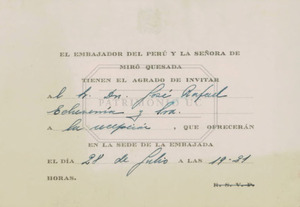 EL EMBAJADOR DEL PERÚ Y LA SEÑORA DE
MIRÓ QUESADA
TIENEN EL AGRADO DE INVITAR
al Dr. José Rafael
Echeverría y Sra.
A la recepción, QUE OFRECERÁN
EN LA SEDE DE LA EMBAJADA
EL DÍA 28 de Julio A LAS 19-21
HORAS.
R. S. V. P.